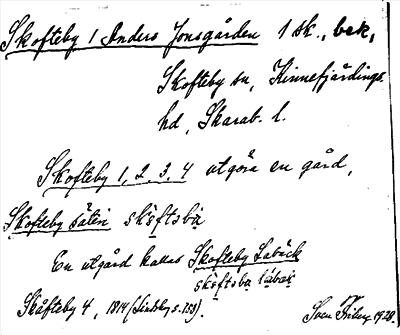 Skofteby 1 Anders Jonsgården 1 sk., bek,
Skofteby sn, Kinnefjärdings
hd, Skarab. l.
Skofteby 1, 2, 3, 4 utgöra en gård,
Skofteby säteri sköftsba
En utgård kallas Skofteby Laback
sköftsba labak
Skåfteby 4, 1814 (Lindsby s. 258).
Sven 1928.